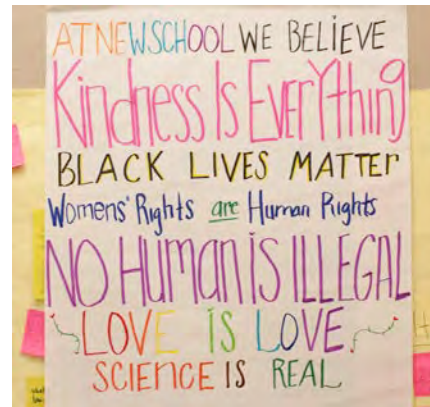 AT NEWSCHOOL WE BELIEVE
Kindness Is EverYthing
BLACK LIVES MATTER
Womens' Rights are Human Rights
NO Human is ILLEGAL
LOVE IS LOVE
SCIENCE IS REAL